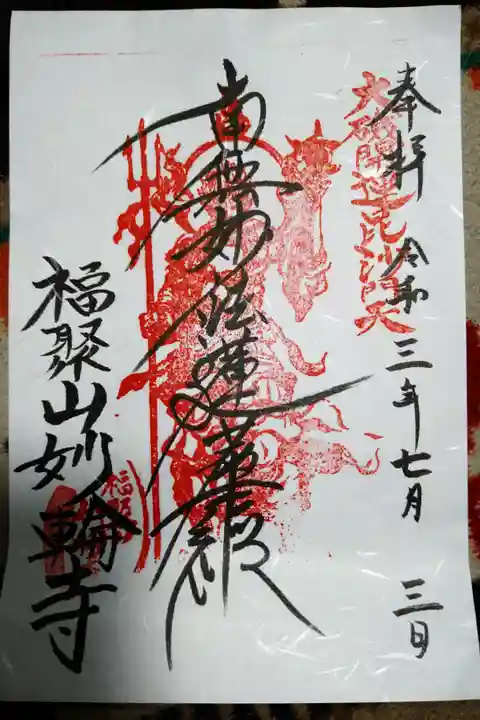 奉拝
令和三年七月三日
大磯開運毘沙門天
南無妙法蓮華経
福聚山妙輪寺